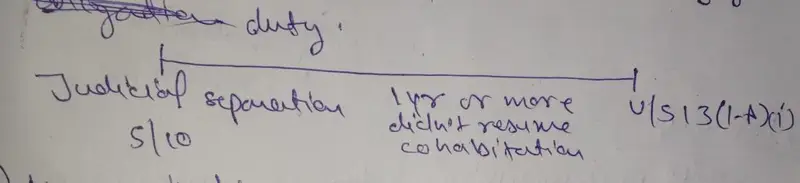 duty.
Judicial separation
S/10
1 yr or more
didn't resume
cohabitation
U/S 13(1-A)(i)